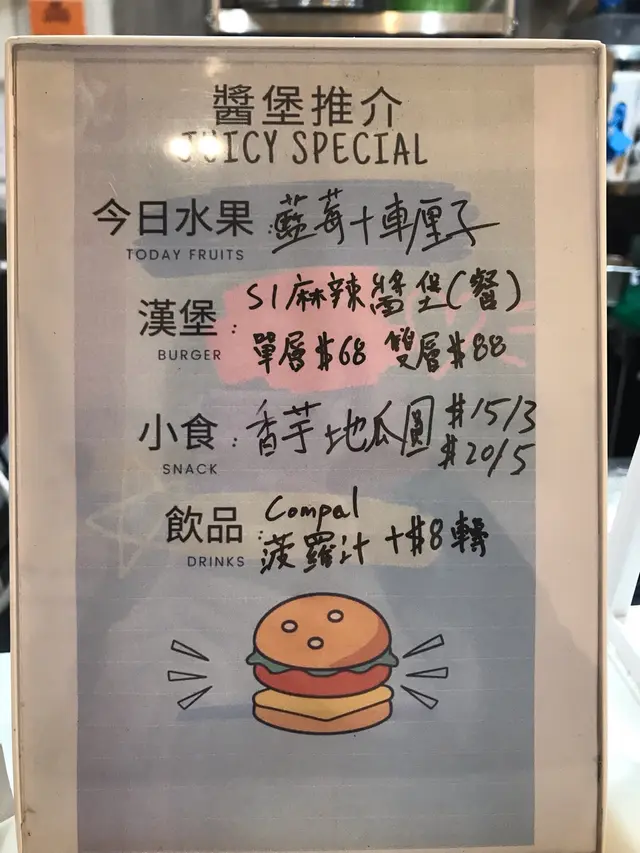 醬堡推介
JUICY SPECIAL
今日水果：藍莓+車厘子
TODAY FRUITS
漢堡：S1麻辣醬堡(餐)
BURGER
單層$68 雙層$88
小食：香芋地瓜圓 $15/3
SNACK
$20/5
飲品：Compal
DRINKS
菠羅汁 +$8轉